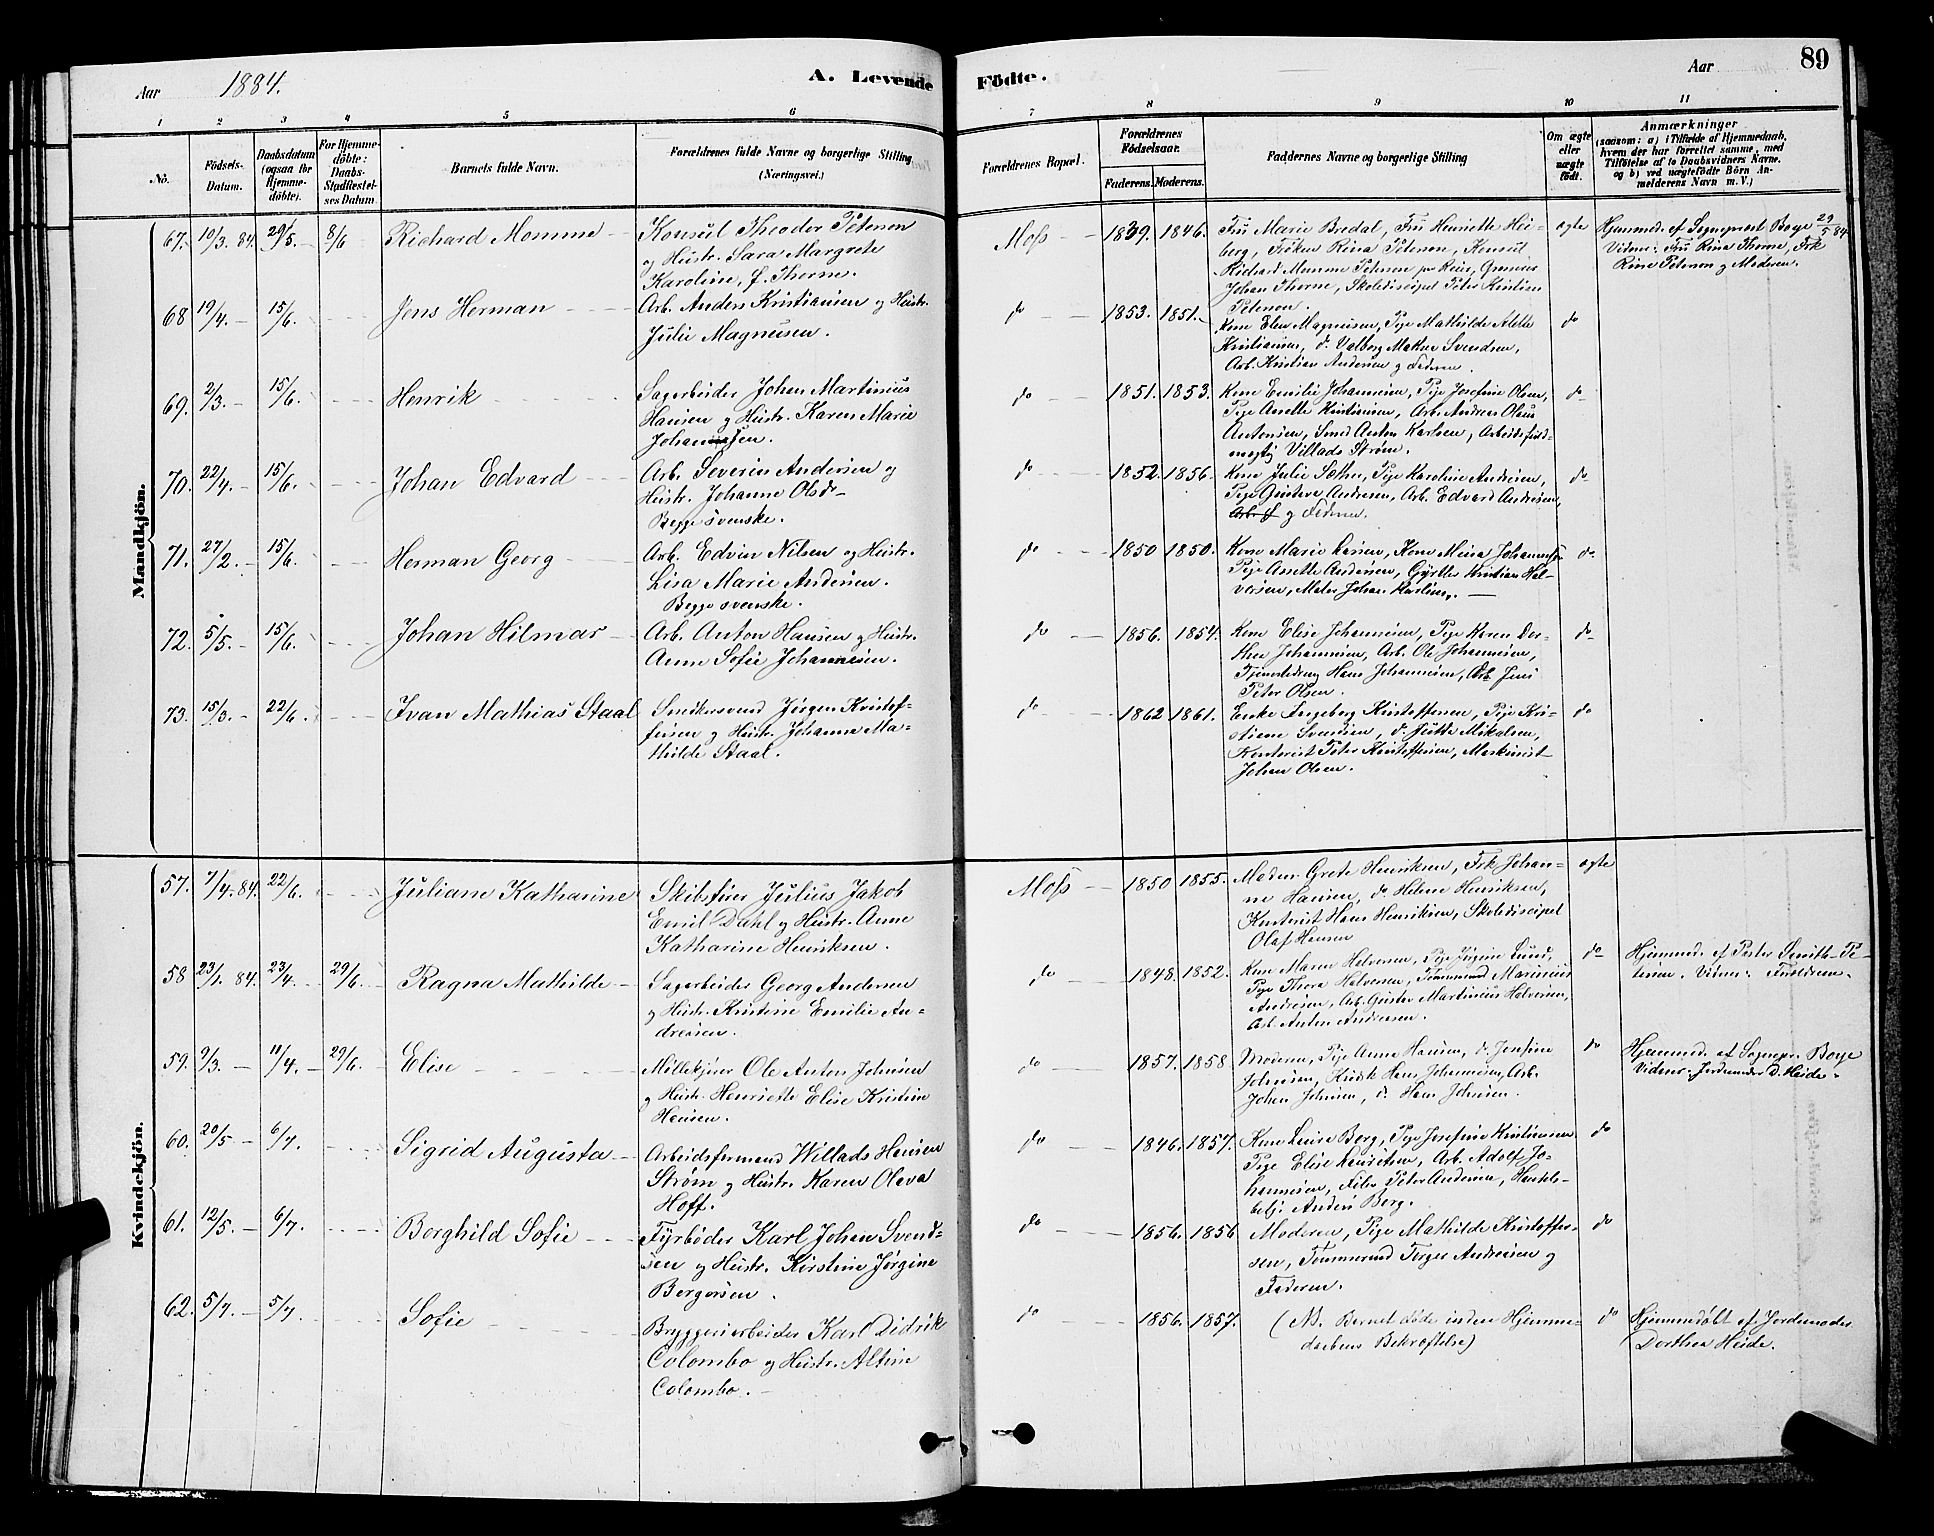 89
Aar 1884. A. Levende Födte. Aar
1 2 3 4 5 6 7 8 9 10 11
No.
Födsels-Datum.
Daabsdatum (ogsaa for Hjemme-döbte).
For Hjemme-döbte: Daabs-Stadfæstel-ses Datum.
Barnets fulde Navn.
Forældrenes fulde Navne og borgerlige Stilling (Næringsvei.)
Forældrenes Bopæl.
Forældrenes Födselsaar.
Faderens. Moderens.
Faddernes Navne og borgerlige Stilling
Om ægte eller uægte födt.
Anmærkninger
(saasom: a) i Tilfælde af Hjemmedaab,
hvem der har forrettet samme, med
Tilföielse af to Daabsvidners Navne,
og b) ved uægtefödte Börn An-
melderens Navn m. V.)
Mandkjön.
67. 10/3. 84. 29/5. 8/6 Richard Momme Konsul Theodor Petersen
og Hustr. Sara Margrete
Karoline, f. Thorne.
Moss 1839. 1846. Fru Marie Bredal, Fru Henriette Hei-
berg, Frøken Rina Petersen, Konsul
Richard Momme Petersen
Johan Thorne, Skolediscipel Peter Kristian
Petersen.
ægte Hjemmed. af Sognepræst Boye 29/5 84
Vidner: Fru Rina Thorne, Frk
Rina Petersen og Moderen.
68 19/4. 15/6. Jens Herman Arb. Anders Kristiansen og Hustr.
Julie Magnusen.
do 1853. 1851. Kone Elen Magnusen, Pige Mathilde Alette
Kristiansen, d. Valborg Svendsen,
Arb. Kristian Andersen og Faderen.
do
69. 2/3. 15/6. Henrik Sagarbeider Johan Martinius
Hansen og Hustr. Karen Marie
Johannesen.
do 1851. 1853. Kone Emilie Johannesen, Pige Josefine Olsen,
Pige Anette Kristiansen, Arb. Andreas Olaus
Antonsen, Smed Anton Karlsen, Arbeidsfuld-
mægtig Villads Strøm.
do
70. 22/4. 15/6. Johan Edvard Arb. Severin Andersen og
Hustr. Johanne Olsdr.
Begge svenske.
do 1852. 1856. Kone Julie Sethre, Pige Karoline Andersen,
Pige Gustava Andersen, Arb. Edvard Andersen,
og Faderen.
do
71. 27/2. 15/6. Herman Georg Arb. Edvin Nilsen og Hustr.
Lisa Marie Andersen.
Begge svenske.
do 1850 1850. Kone Marie Larsen, Kone Mina Johannesen
Pige Anette Andersen, Gjørtler Kristian Hal-
versen, Maler Johan Karlsen.
do.
72. 5/5. 15/6. Johan Hilmar Arb. Anton Hansen og Hustr.
Anne Sofie Johannesen.
do 1856. 1854. Kone Elise Johannesen, Pige Karen Dor-
thea Johannesen, Arb. Ole Johannesen,
Tjenestedreng Hans Johannesen, Arb. Jens
Peter Olsen.
do
73. 15/3. 22/6. Ivan Mathias Staal Smedersvend Jørgen Kristof-
fersen og Hustr. Johanna Ma-
thilde Staal.
do 1862 1861. Enke Ingeborg Kristoffersen, Pige Kri-
stiane Svendsen, d. Jutte Mikalsen,
Kontorist Peter Kristoffersen, Maskinist
Johan Olsen.
do
Kvindekjön.
57. 7/4. 84. 22/6. Juliane Katharine Skibsfører Julius Jakob
Emil Dahl og Hustr. Anne
Katharine Henriksen.
Moss 1850 1855. Madm. Grete Henriksen, Frk Johan-
ne Hansen, do Helene Henriksen,
Kontorist Hans Henriksen, Skolediscipel
Olaf Hansen
ægte
58 23/1. 84. 23/4. 29/6. Ragna Mathilde Sagarbeider Georg Andersen
og Hustr. Kristine Emilie An-
dresen.
do 1848. 1852. Kone Maren Halvorsen, Pige Jørgine Lund,
Pige Thora Halvorsen, Tømmermand Marinius
Andresen, Arb. Gustav Martinius Halvorsen,
Arb. Anton Andreasen.
do Hjemmed. af Pastor Smith-Pe-
tersen. Vidner: Forældrene
59. 9/3. 11/4. 29/6. Elise Møllekjører Ole Anton Johnsen
og Hustr. Henriette Elise Kristine
Hansen.
do 1857. 1858 Moderen, Pige Anna Hansen, d. Josefine
Johnsen, Kusk Hans Johannesen, Arb.
Johan Johnsen, d. Hans Johnsen.
do Hjemmed. af Sognepr. Boye
Vidner: Jordemoder D. Heide
60. 20/5 6/7. Sigrid Augusta Arbeidsformand Willads Hansen
Strøm og Hustr. Karen Olava
Hoff.
do 1846. 1857. Kone Lovise Berg, Pige Josefine Kristiansen
Pige Elise Lauritsen, Arb. Adolf Jo-
hannesen, Peter Andersen, Handels-
betj. Anders Berg.
do
61. 12/5. 6/7. Borghild Sofie Fyrbøder Karl Johan Svend-
sen og Hustr. Kirstine Jørgine
Borgersen.
do 1856. 1856 Moderen, Pige Mathilde Kristoffer-
sen, Tømmermand Torger Andresen og
Faderen.
do
62. 5/7. 5/7. Sofie Bryggeriarbeider Karl Didrik
Colombo og Hustr. Altine
Colombo.
do 1856. 1857. (NB. Barnet døde inden Hjemme-
daabens Bekræftelse)
do Hjemmedøbt af Jordemoder
Dorthea Heide.